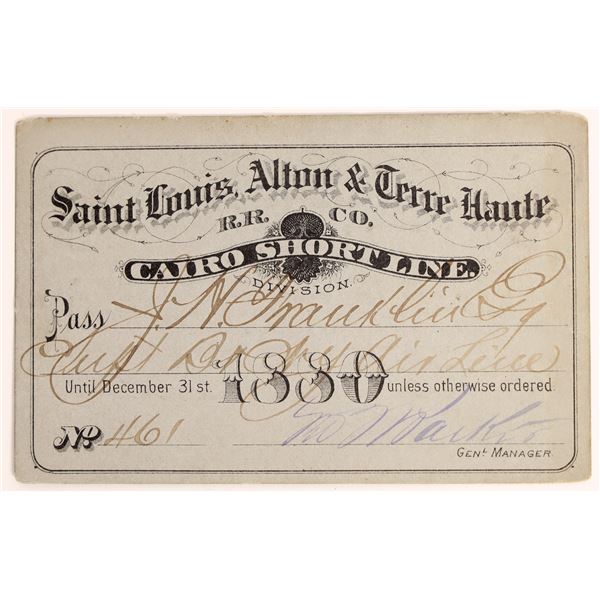 Saint Louis, Alton & Terre Haute
R.R. CO.
CAIRO SHORT LINE.
DIVISION.
Pass J. N. Franklin Esq
Supt Air Line
Until December 31st. 1880 unless otherwise ordered.
No. 461
GENL. MANAGER